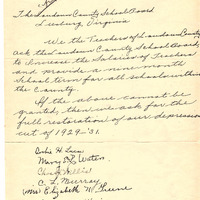 The Loudoun County School Board
Leesburg Virginia
We the Teachers of Loudoun County
ask the Loudoun County School Board
to increase the Salaries of Teachers
and provide a nine month
School term for all schools within
the County.
If the above cannot be
granted, then we ask for the
full restoration of our depression
cut of 1929-'31.
H.
Mary E. Waters
Willis
C. L. Murray
(Mrs) Elizabeth W.